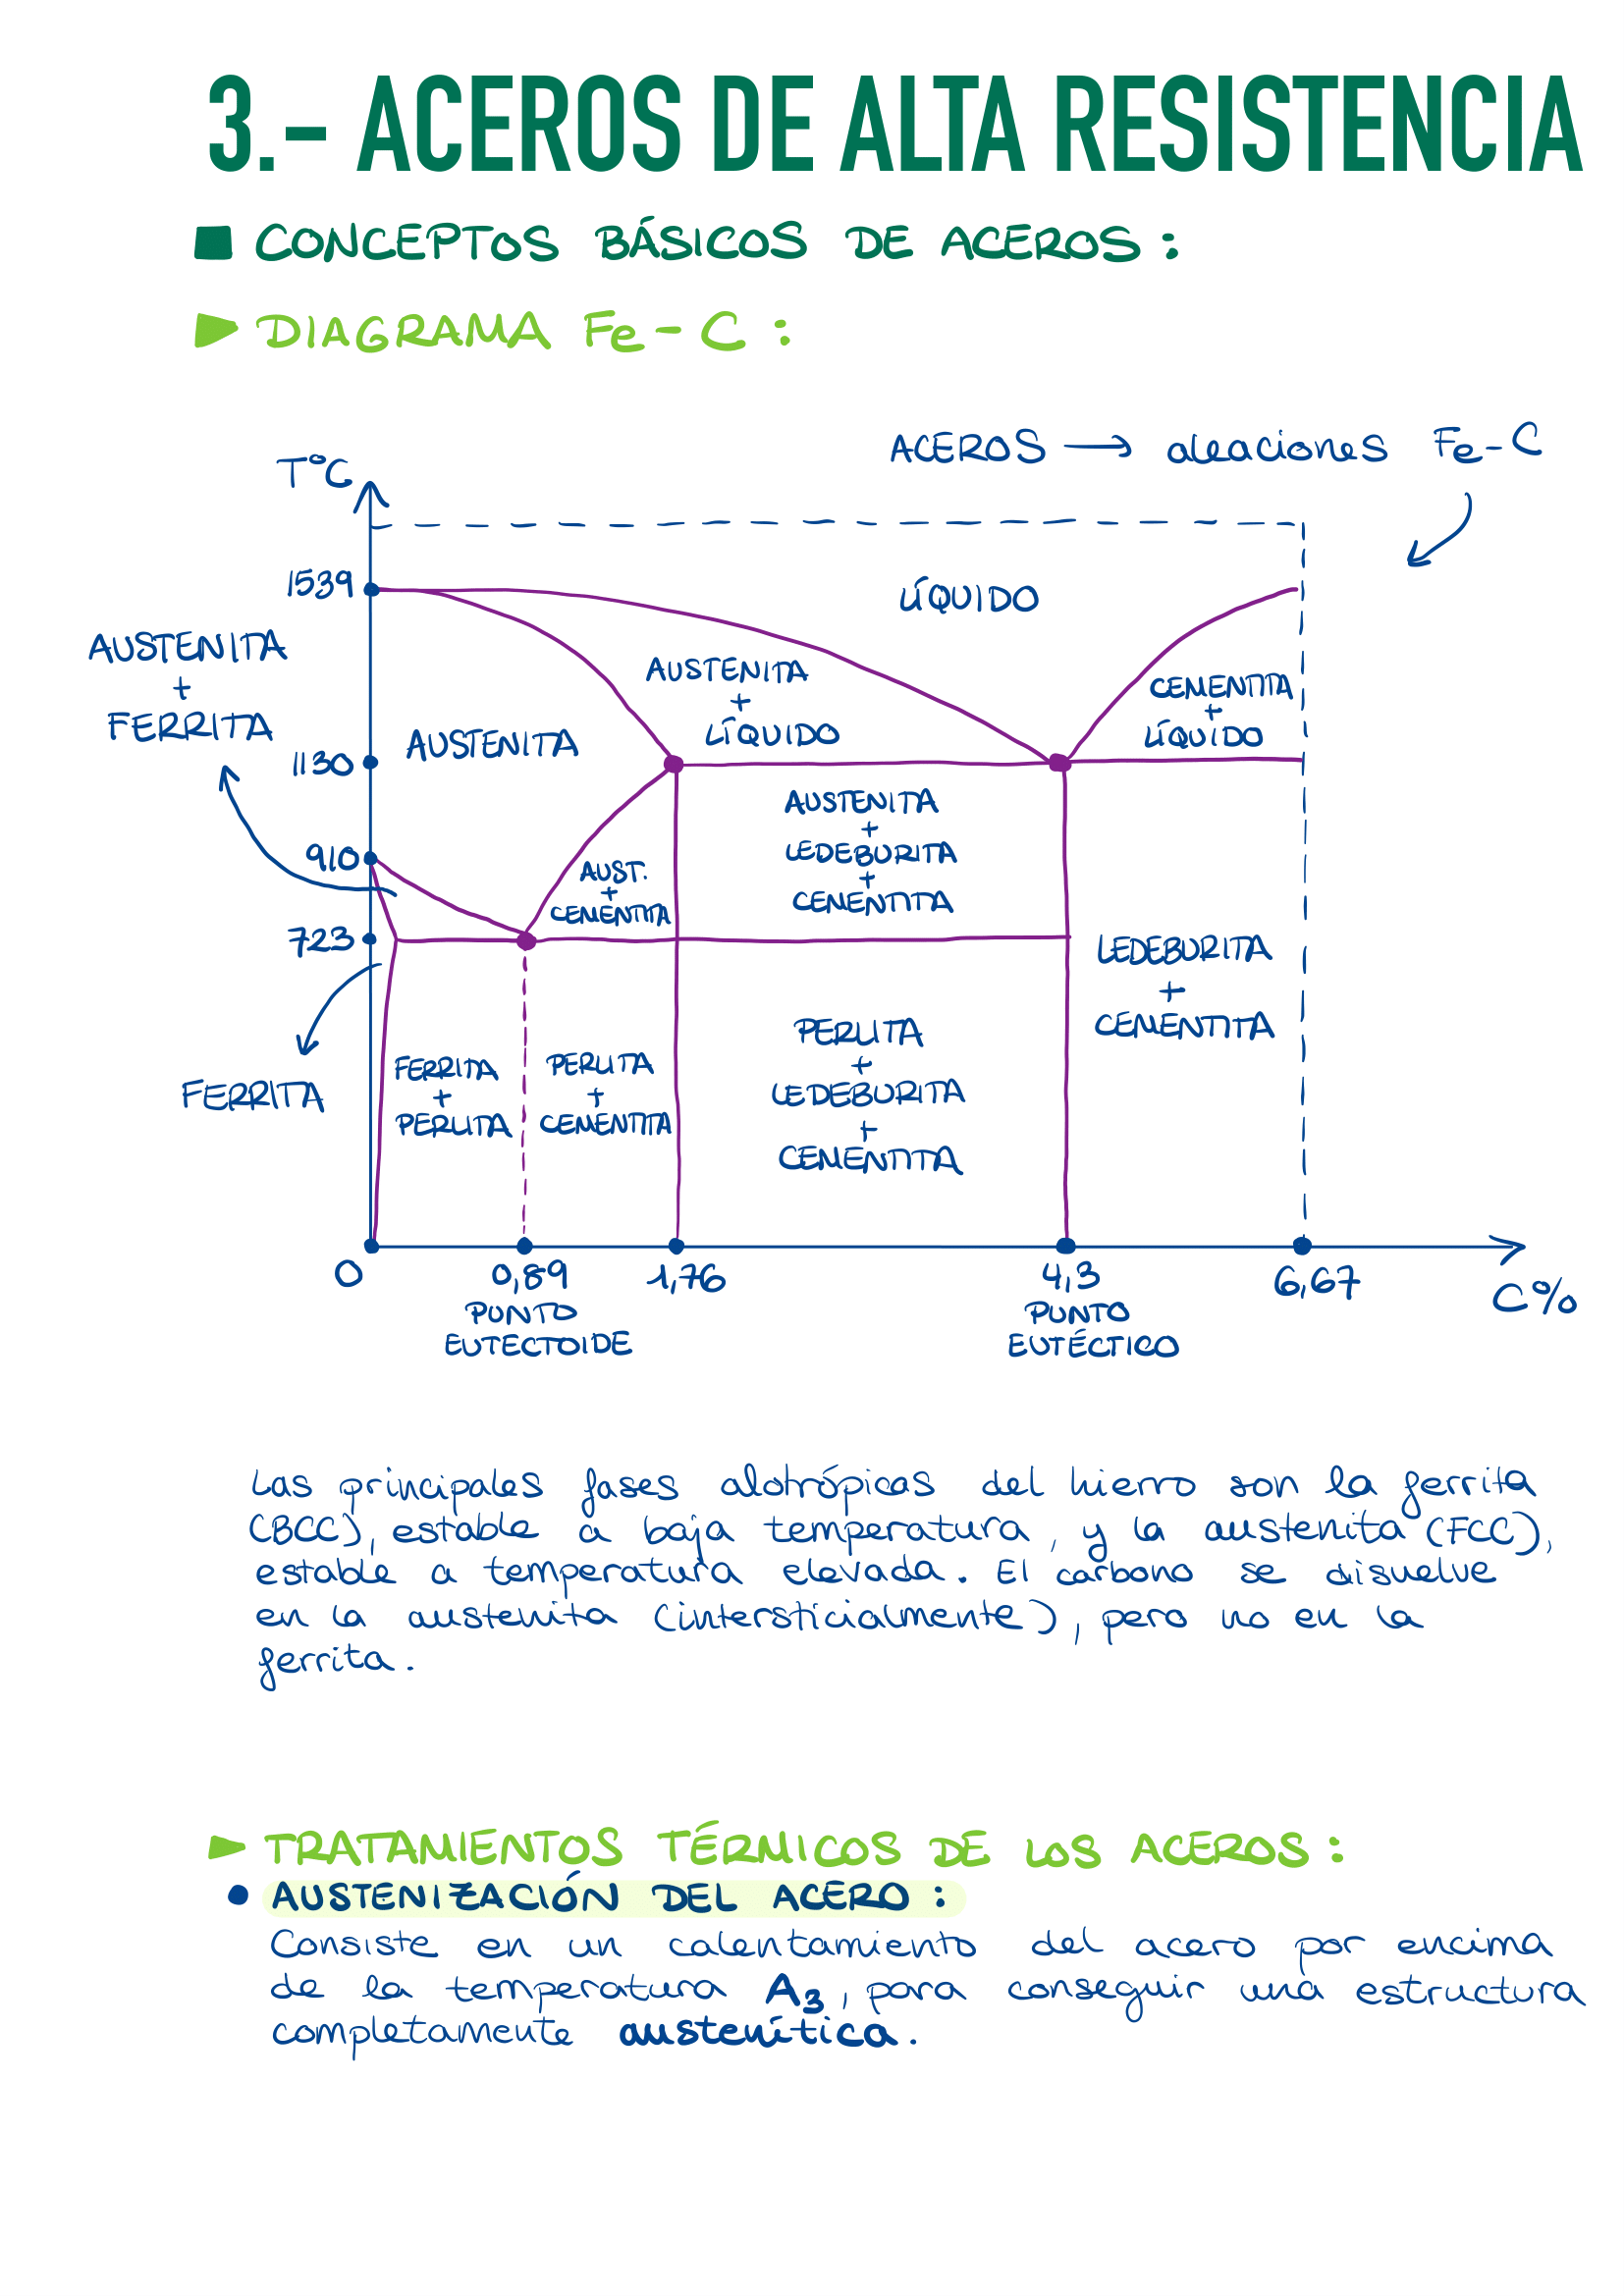 3.- ACEROS DE ALTA RESISTENCIA
CONCEPTOS BÁSICOS DE ACEROS:
DIAGRAMA Fe-C:
ACEROS → aleaciones Fe-C
T°C
1539
LÍQUIDO
AUSTENITA
+
FERRITA
AUSTENITA
+
LÍQUIDO
CEMENTITA
+
LÍQUIDO
AUSTENITA
1130
AUSTENITA
+
LEDEBURITA
+
CEMENTITA
910
AUST.
+
CEMENTITA
723
LEDEBURITA
+
CEMENTITA
FERRITA
FERRITA
+
PERLITA
PERLITA
+
CEMENTITA
PERLITA
+
LEDEBURITA
+
CEMENTITA
0
0,89
PUNTO
EUTECTOIDE
1,76
4,3
PUNTO
EUTÉCTICO
6,67
C%
Las principales fases alotrópicas del hierro son la ferrita
(BCC), estable a baja temperatura, y la austenita (FCC),
estable a temperatura elevada. El carbono se disuelve
en la austenita (intersticialmente), pero no en la
ferrita.
TRATAMIENTOS TÉRMICOS DE LOS ACEROS:
AUSTENIZACIÓN DEL ACERO:
Consiste en un calentamiento del acero por encima
de la temperatura A₃, para conseguir una estructura
completamente austenítica.